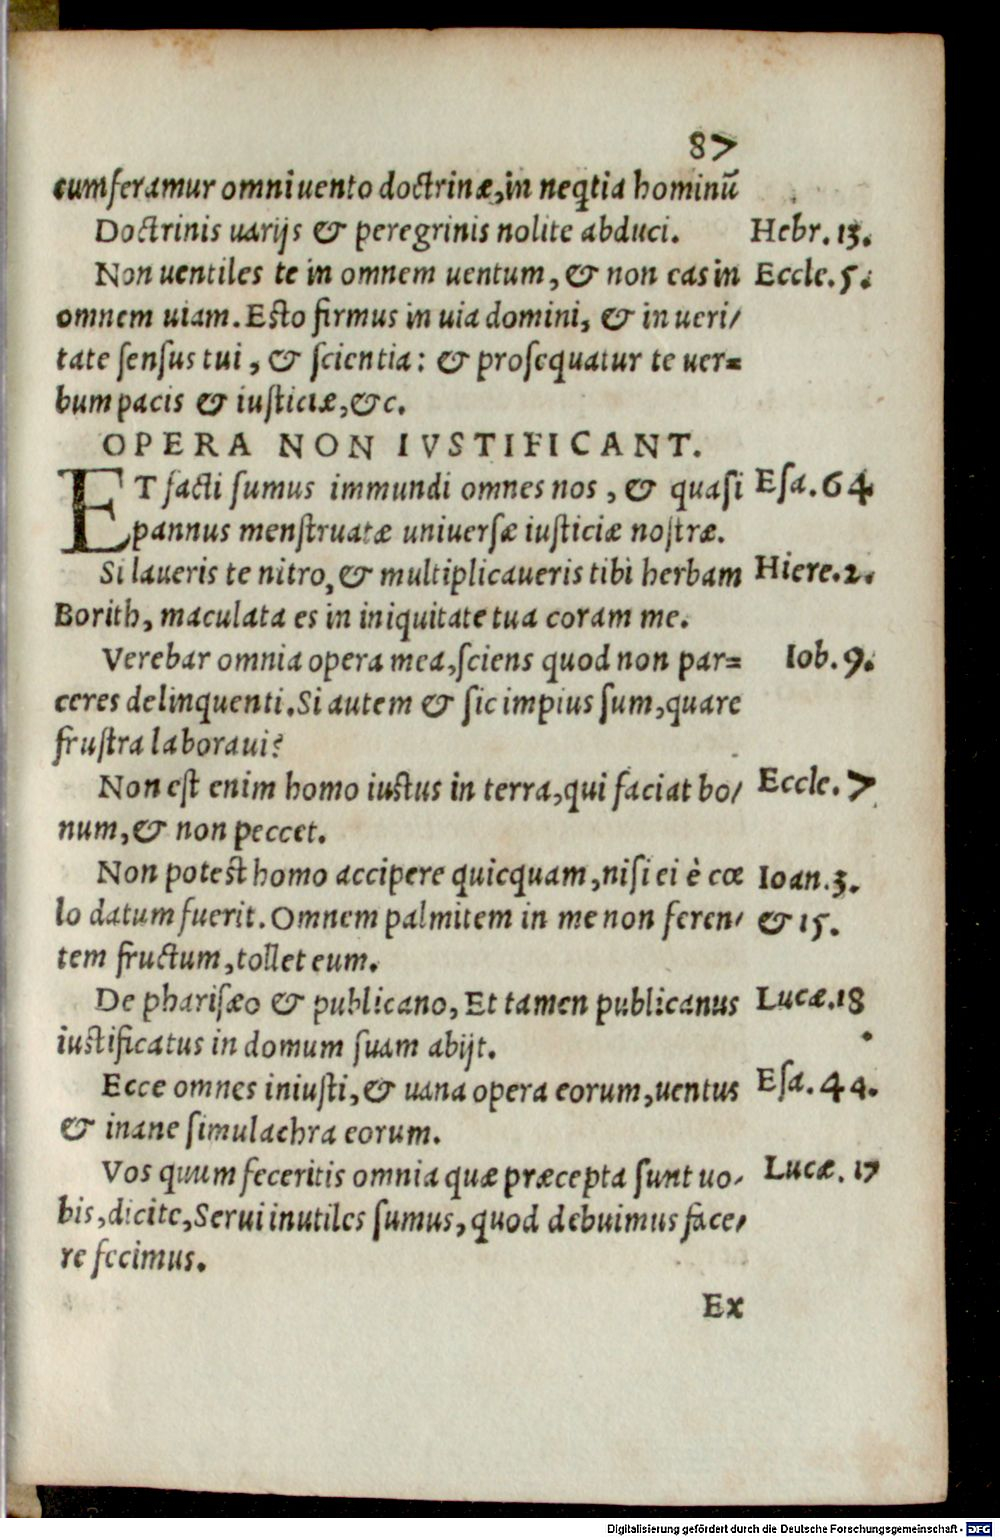 87
cumferamur omni uento doctrinæ, in neqtia hominū
Doctrinis uarijs & peregrinis nolite abduci. Hebr. 13.
Non uentiles te in omnem uentum, & non eas in Eccle. 5.
omnem uiam. Esto firmus in uia domini, & in ueri/
tate sensus tui, & scientia: & prosequatur te uer=
bum pacis & iusticiæ, &c.
OPERA NON IVSTIFICANT.
ET facti sumus immundi omnes nos, & quasi Esa. 64
pannus menstruatæ uniuersæ iusticiæ nostræ.
Si laueris te nitro, & multiplicaueris tibi herbam Hiere. 2.
Borith, maculata es in iniquitate tua coram me.
Verebar omnia opera mea, sciens quod non par= Iob. 9.
ceres delinquenti. Si autem & sic impius sum, quare
frustra laboraui?
Non est enim homo iustus in terra, qui faciat bo/ Eccle. 7
num, & non peccet.
Non potest homo accipere quicquam, nisi ei è cœ Ioan. 3.
lo datum fuerit. Omnem palmitem in me non feren/ & 15.
tem fructum, tollet eum.
De pharisæo & publicano, Et tamen publicanus Lucæ. 18
iustificatus in domum suam abijt.
Ecce omnes iniusti, & uana opera eorum, uentus Esa. 44.
& inane simulachra eorum.
Vos quum feceritis omnia quæ præcepta sunt uo/ Lucæ. 17
bis, dicite, Serui inutiles sumus, quod debuimus face/
re fecimus.
Ex
Digitalisierung gefördert durch die Deutsche Forschungsgemeinschaft - DFG